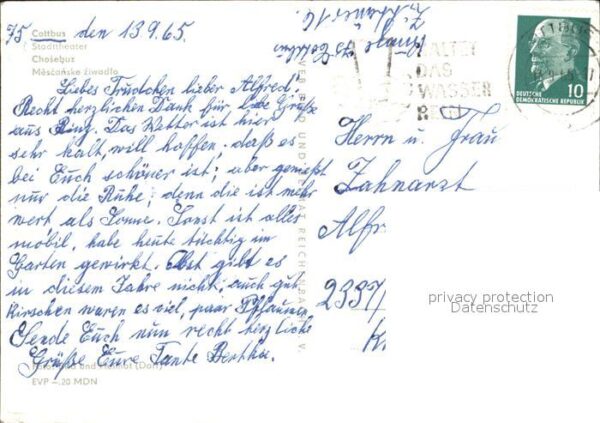 75 Cottbus den 13.9.65.
Stadttheater
Chośebuz
Měsćańske źiwadło
Liebes Trudchen lieber Alfred!
Recht herzlichen Dank für liebe Grüße
aus Das Wetter ist hier
sehr kalt, will hoffen, daß es
bei Euch schöner ist; aber genießt
nur die Ruhe; denn die ist mehr
wert als Sonne. Sonst ist alles
mobil, habe heute tüchtig im
Garten gewirkt. Obst gibt es
in diesem Jahre nicht; auch gut
Kirschen waren es viel, paar Pflaumen
Sende Euch nun recht herzliche
Grüße Eure Tante Bertha.
und Helmot (Dorf)
EVP –.20 MDN
VERLAG UND REICHENBACH I. V.
HALTET
DAS
WASSER
REIN
DEUTSCHE
DEMOKRATISCHE REPUBLIK
10
Herrn u. Frau
Zahnarzt
Alfr
2337
K.
privacy protection
Datenschutz